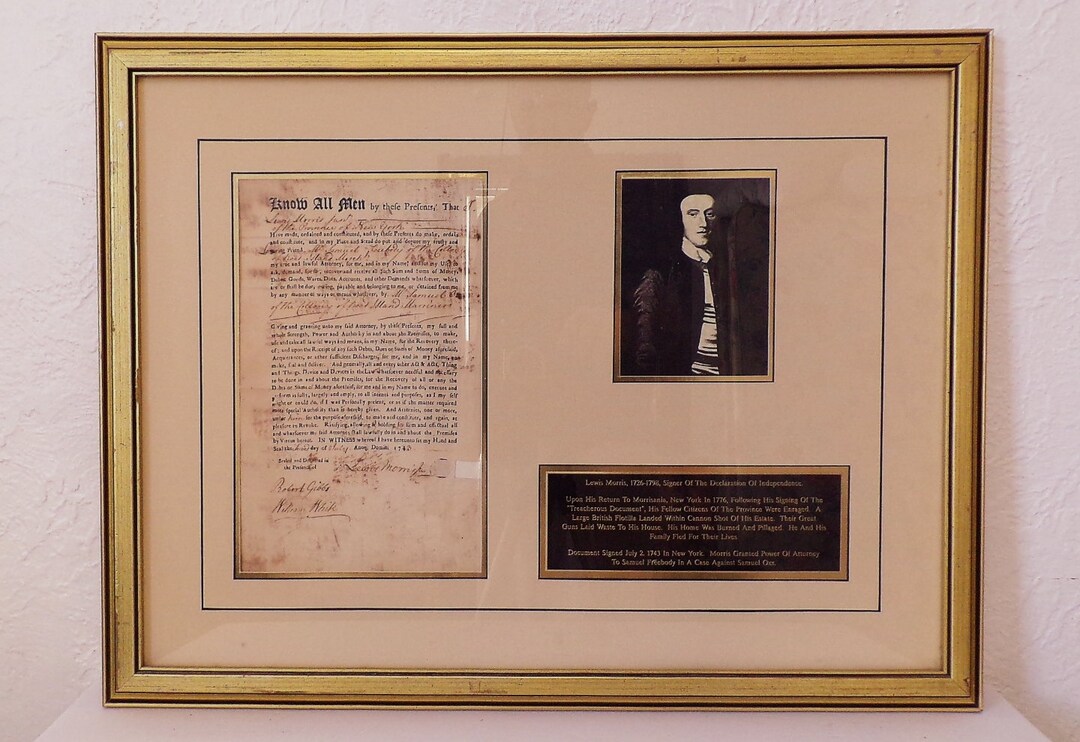 Know All Men by these Presents, That I
Lewis Morris Junr
of the Province of New York
Have made, ordained and constituted, and by these Presents do make, ordain
and constitute, and in my Place and Stead do put and depute my trusty and
loving Friend, Mr Samuel Freebody of the Colony
of
true and lawful Attorney, for me, and in my Name, and to my Use, to
ask, demand, sue for, recover and receive all such Sum and Sums of Money,
Debts, Goods, Wares, Dues, Accounts, and other Demands whatsoever, which
are or shall be due, owing, payable and belonging to me, or detained from me
by any manner of ways or means whatsoever, by Mr Samuel
of the Colony of Island Marriner
Giving and granting unto my said Attorney, by these Presents, my full and
whole Strength, Power and Authority in and about the Premises, to make,
use and take all lawful ways and means, in my Name, for the Recovery there-
of; and upon the Receipt of any such Debts, Dues or Sums of Money aforesaid,
Acquittances, or other sufficient Discharges, for me, and in my Name,
make, seal and deliver. And generally all and every other Act & Acts, Thing
and Things, Device and Devices in the Law whatsoever needful and necessary
to be done in and about the Premises, for the Recovery of all or any the
Debts or Sums of Money aforesaid, for me and in my Name to do, execute and
perform as fully, largely and amply, to all intents and purposes, as I my self
might or could do, if I was Personally present, or as if the matter required
more special Authority than is hereby given. And Attornies, one or more,
under him for the purpose aforesaid, to make and constitute, and again, at
pleasure to Revoke. Ratifying, allowing & holding for firm and effectual all
and whatsoever my said Attorney shall lawfully do in and about the Premises
by Virtue hereof. IN WITNESS whereof I have hereunto set my Hand and
Seal the day of July Anno Domini 1743
Sealed and Delivered in
the Presence of
Lewis Morris
Robert Gibbs
White
Lewis Morris, 1726-1798, Signer Of The Declaration Of Independence.
Upon His Return To Morrisania, New York In 1776, Following His Signing Of The
"Treecherous Document", His Fellow Citizens Of The Province Were Enraged. A
Large British Flotilla Landed Within Cannon Shot Of His Estate. Their Great
Guns Laid Waste To His House. His Home Was Burned And Pillaged. He And His
Family Fled For Their Lives
Document Signed July 2, 1743 In New York. Morris Granted Power Of Attorney
To Samuel Freebody In A Case Against Samuel Oxx.